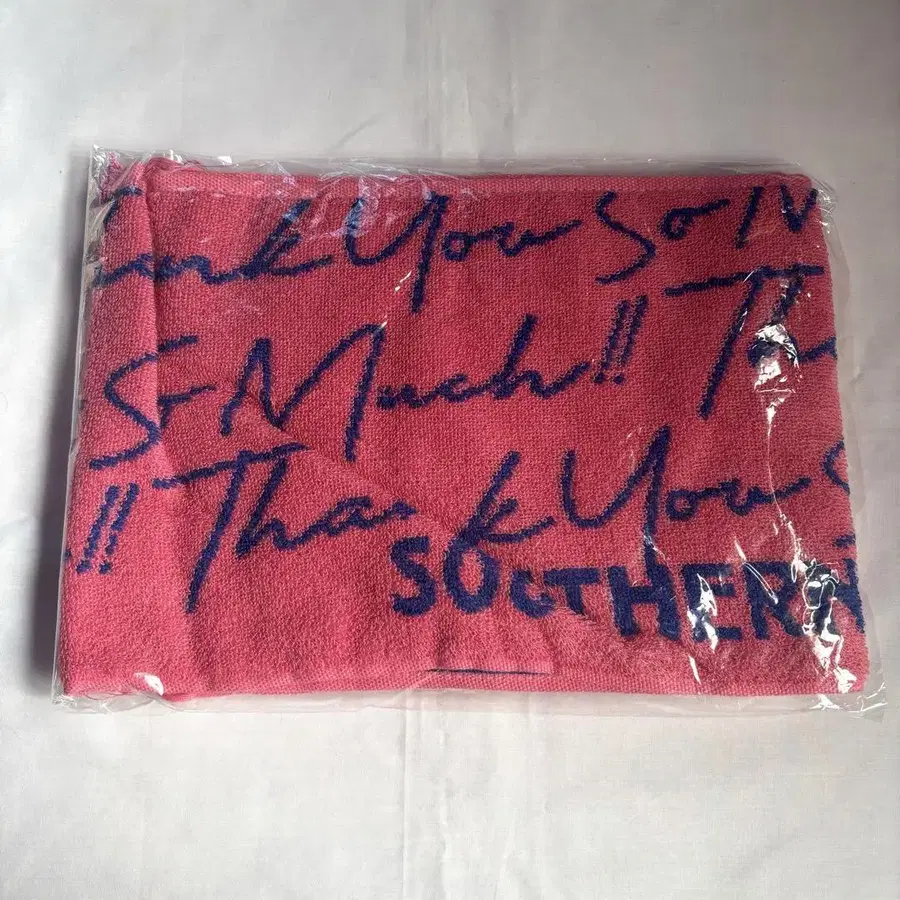 Thank You So M
So Much!! Tha
!! Thank You S
SOUTHERN